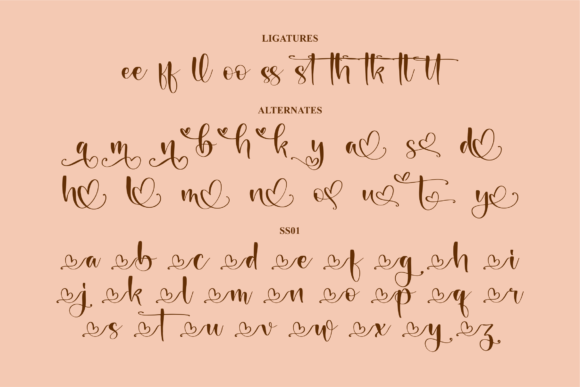 LIGATURES
ee ff ll oo ss st th tk lt tt
ALTERNATES
q m n b h k y a s d
h l m n o u t y
SS01
a b c d e f g h i
j k l m n o p q r
s t u v w x y z